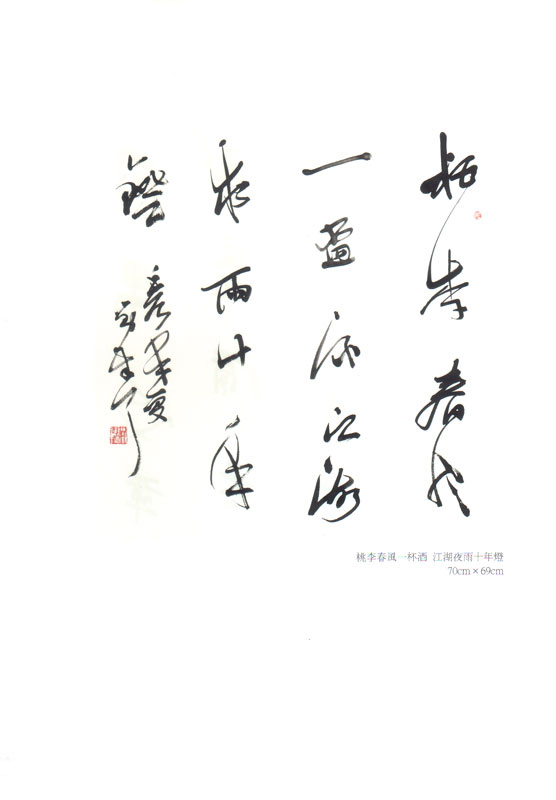 桃李春風
一盃酒江湖
夜雨十年
燈
桃李春風一杯酒 江湖夜雨十年燈
70cm×69cm